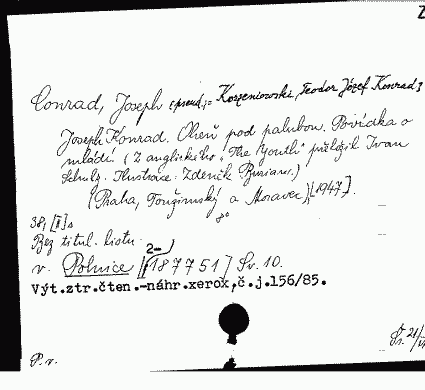 Z
Conrad, Joseph [pseud.= Korzeniowski, Teodor Józef Konrad]
Joseph Konrad. Oheň pod palubou. Povídka o
mládí. (Z anglického "The Youth" přeložil Ivan
Schulz. Ilustrace: Zdeněk Burian.)
(Praha, Toužimský a Moravec), [1947].
8°
38, [II] s.
Bez titul. listu.
2-
v. Polnice [187751] Sv. 10.
Výt.ztr.čten.-náhr.xerox,č.j.156/85.
P. v.